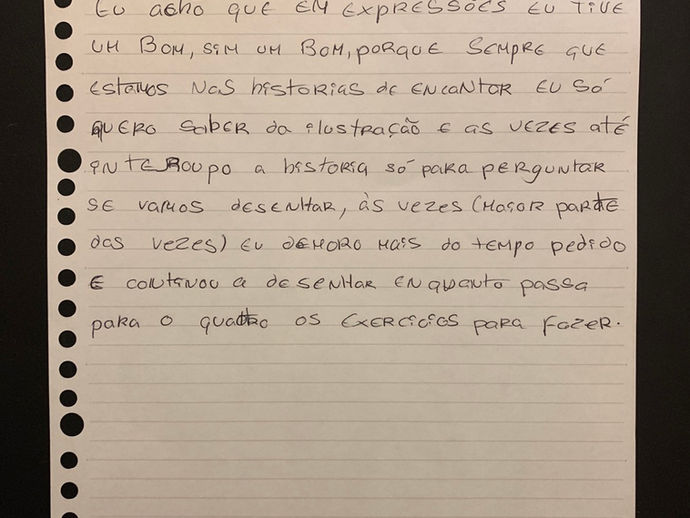 Eu acho que em expressões eu tive
um Bom, sim um Bom, porque sempre que
estamos nas historias de encantar eu só
quero saber da ilustração e as vezes até
interroupo a historia só para perguntar
se vamos desenhar, às vezes (Maçor parte
das vezes) eu demoro mais do tempo pedido
e continou a desenhar enquanto passa
para o quadro os exercicios para fazer.